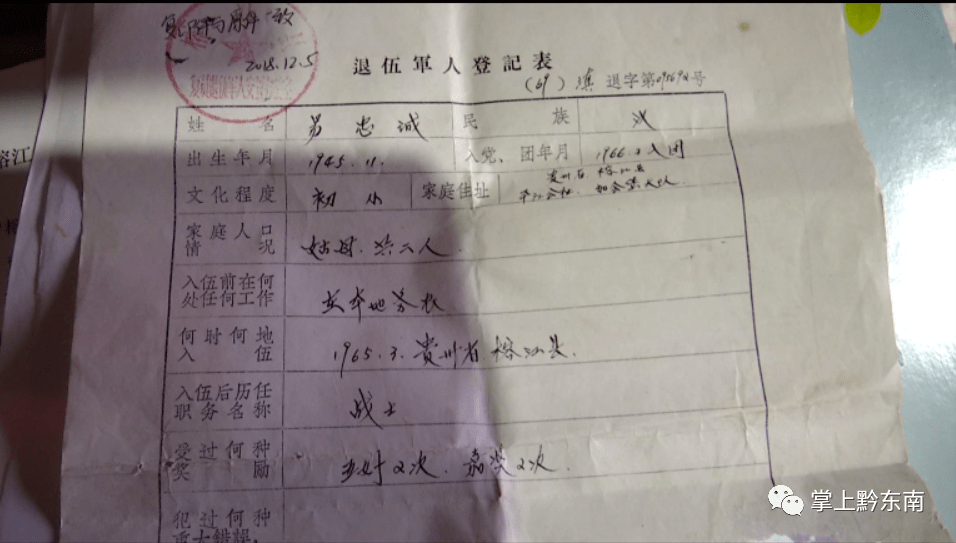 复印件与原件一致
2018.12.5
退伍軍人登記表
(69) 滇 退字第 号
姓名 忠诚 民族 汉
出生年月 1945.11. 入党、团年月 1966.2入团
文化程度 初小 家庭住址 贵州省 榕江县
家庭人口情况 姑母.共二人.
入伍前在何处任何工作 在本地务农
何时何地入伍 1965.3.贵州省榕江县.
入伍后历任职务名称 战士
受过何种奖励 五好2次.嘉奖2次.
犯过何种
重大错误,
榕江
掌上黔东南